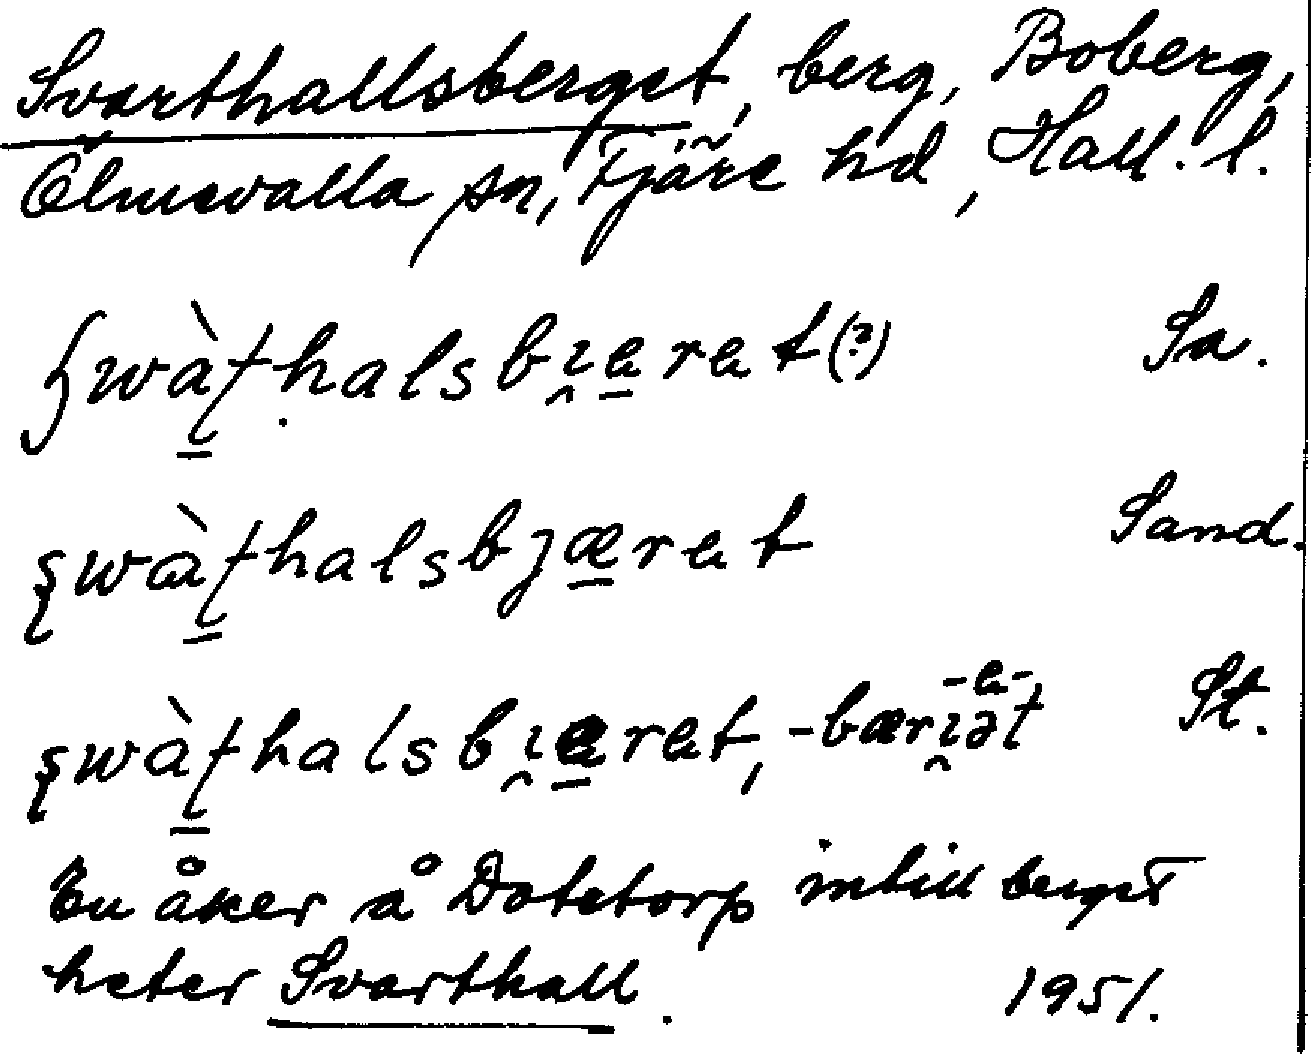 Svarthallsberget, berg, Boberg,
Ölmevalla sn, Fjäre hd, Hall. l.
ʃwàʈhalsbı̯eret(?) Sa.
ʂwàʈhalsbȷæret Sand.
ʂwàʈhalsbı̯eret, -bærı̯ət -e- St.
En åker å Dotetorp intill berget
heter Svarthall. 1951.